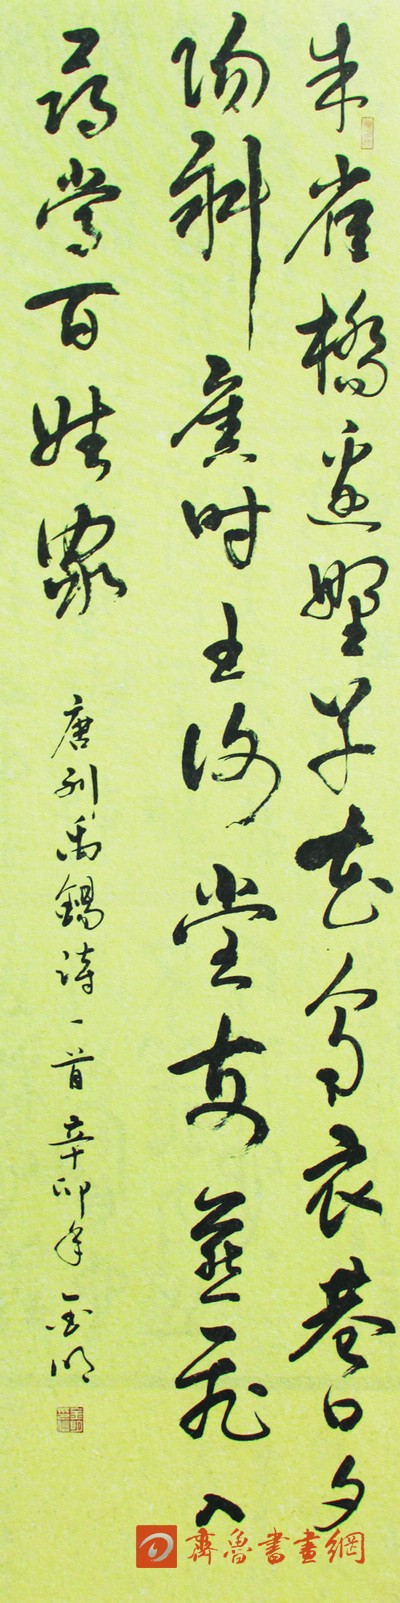 朱雀橋邊野草花烏衣巷口夕
陽斜舊時王謝堂前燕飛入
尋常百姓家
唐刘禹錫詩一首辛卯年
齊魯書畫網